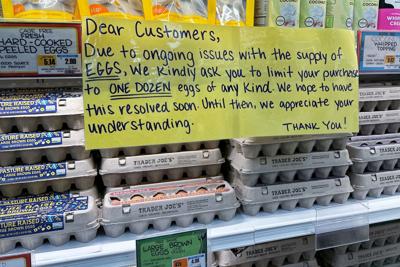 CAGE FREE
FRESH
HARD-COOKED
PEELED EGGS
WHIPPED
TOPPING
Dear Customers,
Due to ongoing issues with the supply of
EGGS, we kindly ask you to limit your purchase
to ONE DOZEN eggs of any Kind. We hope to have
this resolved soon. Until then, we appreciate your
understanding. THANK YOU!
PASTURE RAISED
TRADER JOE'S
TRADER JOE'S
TRADER JOE'S
PASTURE RAISED
TRADER JOE'S
TRADER JOE'S
PASTURE RAISED
TRADER JOE'S
LARGE BROWN
EGGS
TRADER JOE'S